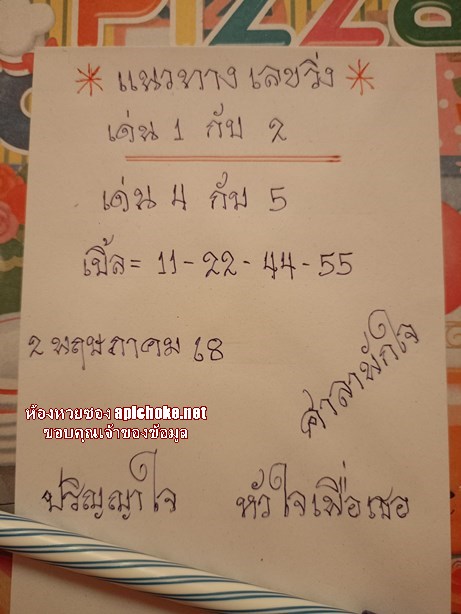 PIZZA
* แนวทางเลขวิ่ง *
เด่น 1 กับ 2
เด่น 4 กับ 5
เบิ้ล = 11 - 22 - 44 - 55
2 พฤษภาคม 68
ศาลาพักใจ
ห้องหวยซอง apichoke.net
ขอบคุณเจ้าของข้อมูล
ปริญญาใจ
หัวใจเพื่อเธอ